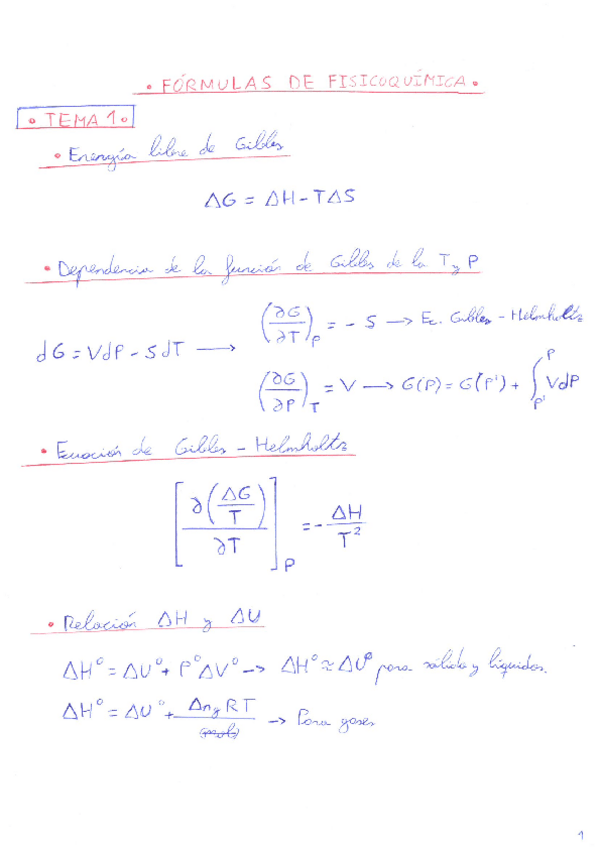 • FÓRMULAS DE FISICOQUÍMICA •
• TEMA 1 •
• Energía libre de Gibbs
ΔG = ΔH - TΔS
• Dependencia de la función de Gibbs de la T y P
(∂G/∂T)_P = - S → Ec. Gibbs - Helmholtz
dG = VdP - SdT →
(∂G/∂P)_T = V → G(P) = G(P') + ∫_P'^P VdP
• Ecuación de Gibbs - Helmholtz
[∂(ΔG/T)/∂T]_P = - ΔH/T²
• Relación ΔH y ΔU
ΔH° = ΔU° + P°ΔV° → ΔH° ≈ ΔU° para sólidos y líquidos.
ΔH° = ΔU° + Δn_g RT → Para gases
1